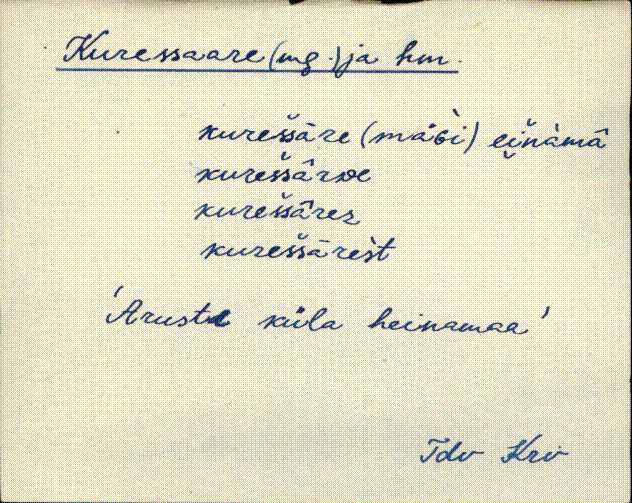 Kuressaare (mg.) ja hm.
kuressāre (mäɢi) einàmâ
kuressârᴅe
kuressârez
kuressārest
'Aruste küla heinamaa'
Tdv Krv